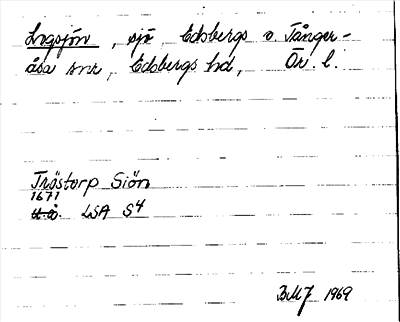 Logsjön, sjö, Edsbergs o. Tånger-
åsa snr, Edsbergs hd, Ör. l.
Tröstorp Siön
1671
u.å. LSA S4
BMJ 1969